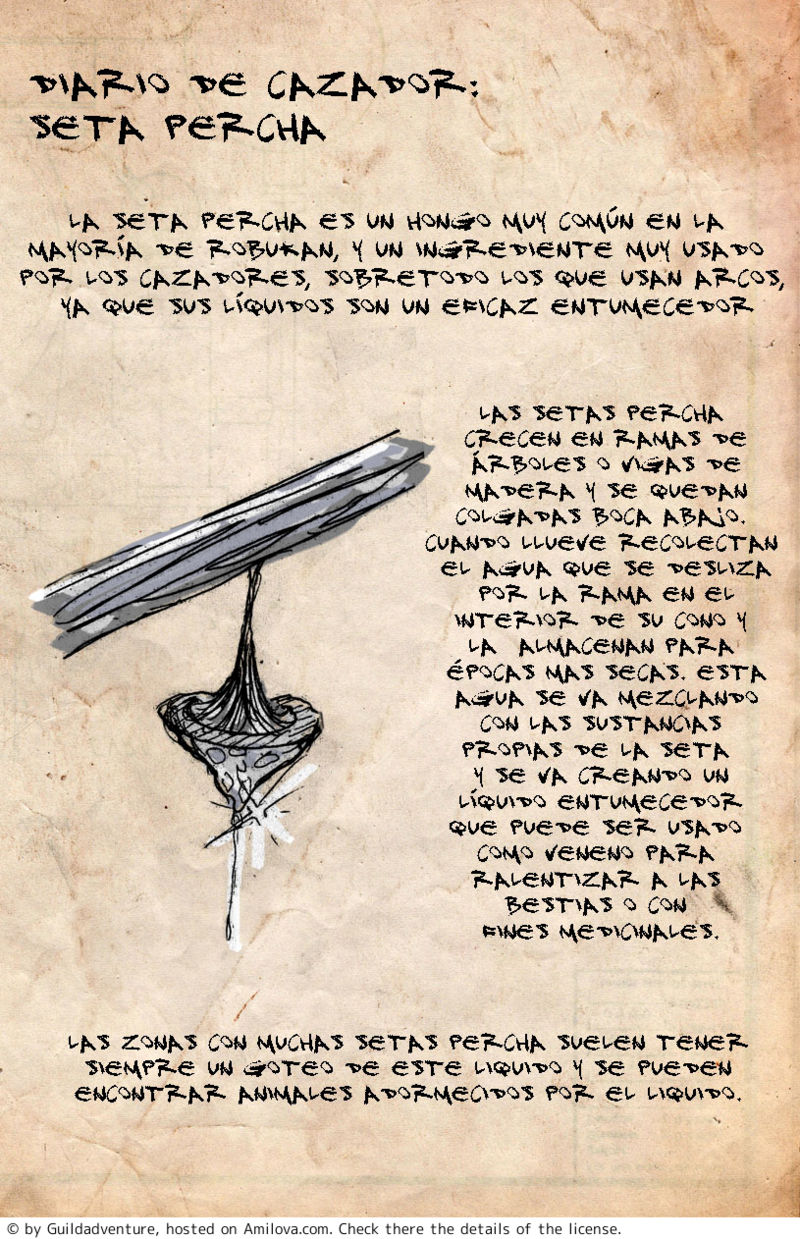 DIARIO DE CAZADOR:
SETA PERCHA
LA SETA PERCHA ES UN HONGO MUY COMÚN EN LA
MAYORÍA DE ROBUKAN, Y UN INGREDIENTE MUY USADO
POR LOS CAZADORES, SOBRETODO LOS QUE USAN ARCOS,
YA QUE SUS LÍQUIDOS SON UN EFICAZ ENTUMECEDOR
LAS SETAS PERCHA
CRECEN EN RAMAS DE
ÁRBOLES O VIGAS DE
MADERA Y SE QUEDAN
COLGADAS BOCA ABAJO.
CUANDO LLUEVE RECOLECTAN
EL AGUA QUE SE DESLIZA
POR LA RAMA EN EL
INTERIOR DE SU CONO Y
LA ALMACENAN PARA
ÉPOCAS MAS SECAS. ESTA
AGUA SE VA MEZCLANDO
CON LAS SUSTANCIAS
PROPIAS DE LA SETA
Y SE VA CREANDO UN
LÍQUIDO ENTUMECEDOR
QUE PUEDE SER USADO
COMO VENENO PARA
RALENTIZAR A LAS
BESTIAS O CON
FINES MEDICINALES.
LAS ZONAS CON MUCHAS SETAS PERCHA SUELEN TENER
SIEMPRE UN GOTEO DE ESTE LIQUIDO Y SE PUEDEN
ENCONTRAR ANIMALES ADORMECIDOS POR EL LIQUIDO.
© by Guildadventure, hosted on Amilova.com. Check there the details of the license.